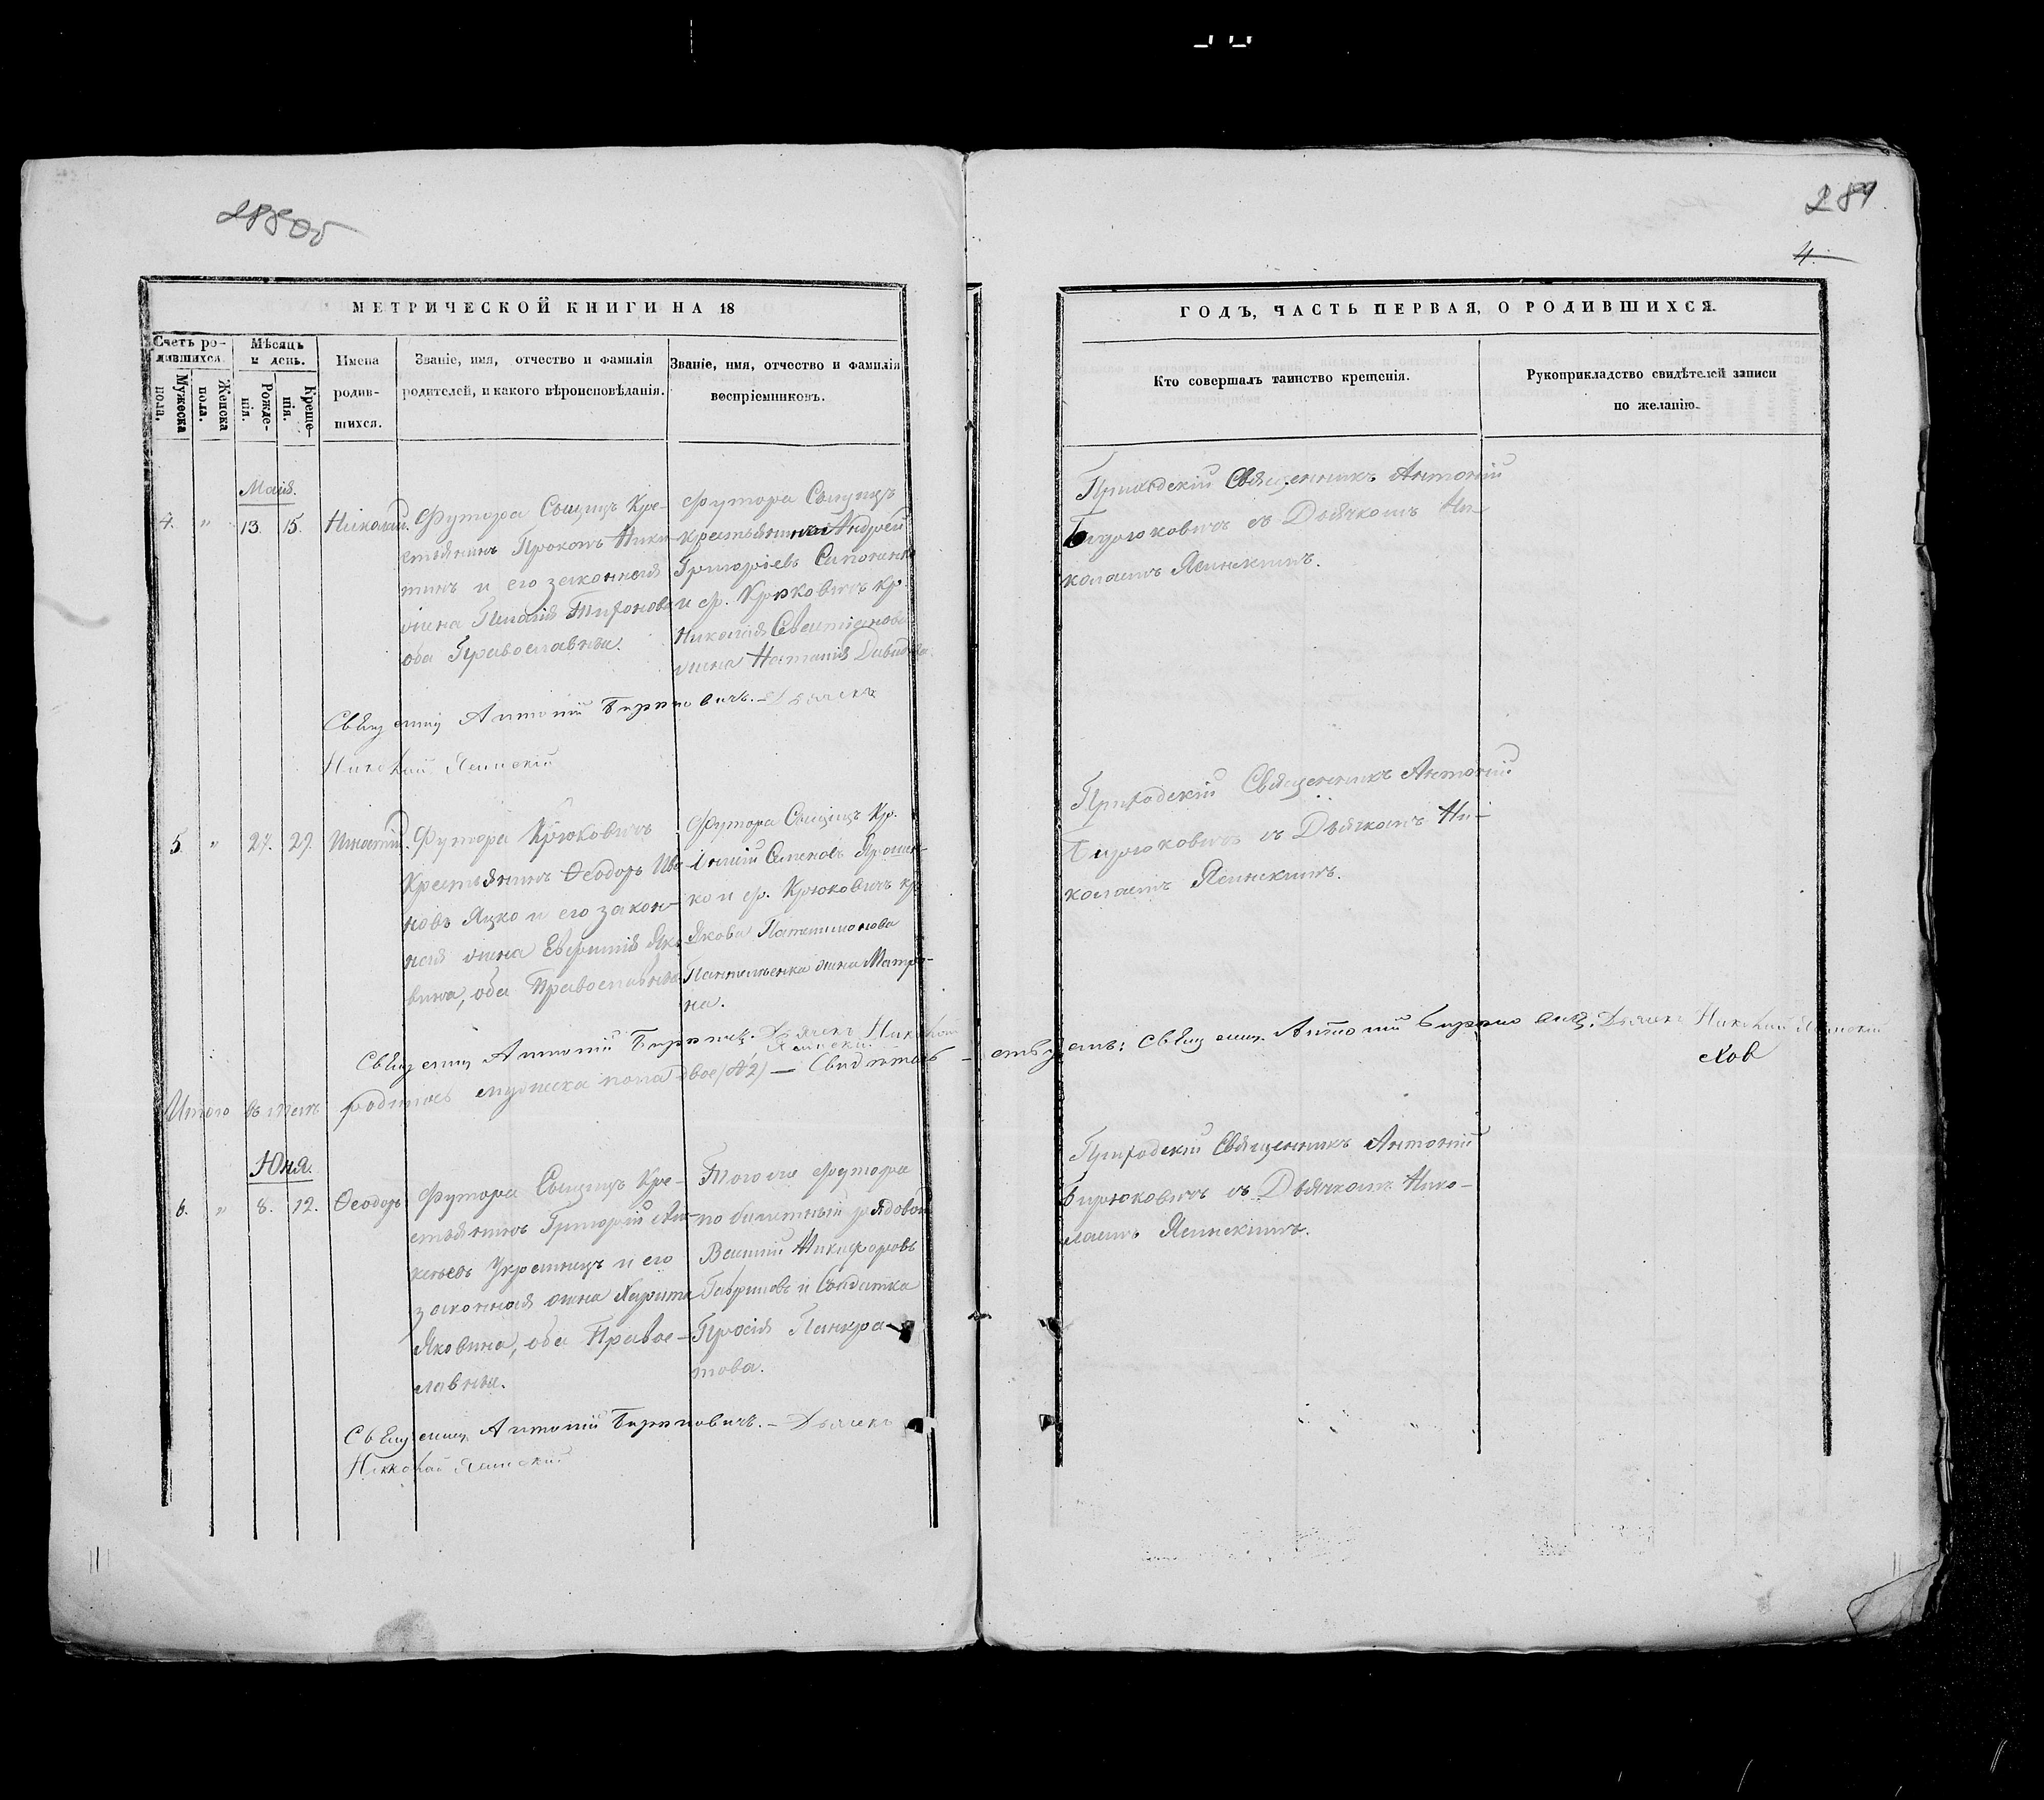 288об
МЕТРИЧЕСКОЙ КНИГИ НА 18
Счетъ ро-
дившихся.
Мужеска
пола.
Женска
пола.
Мѣсяцъ
и день.
Рожде-
нія.
Креще-
нія.
Имена
родив-
шихся.
Званіе, имя, отчество и фамилія
родителей, и какого вѣроисповѣданія.
Званіе, имя, отчество и фамилія
воспріемниковъ.
Маія.
4. " 13. 15. Николай.
Футора Сыщицъ Кре-
стьянинъ Прокопъ Ники-
тинъ и его законная
жена Пелагія Тифонова
оба Православныи.
Футора Сыщицъ
крестьянинъ Андрей
Григоріевъ
и ф. Крюковичъ кр.
Николая Севастіанова
жена Наталія Давидова.
Священник Антоній Бирюковичъ. – Дьячекъ
Николай Ялинскій
5. " 27. 29. Игнатій.
Футора Крюковичъ
Крестьянинъ Ѳеодоръ Ива-
новъ Яцко и его закон-
ная жена Евфимія Яко-
вина, оба Православныи
Футора Сыщицъ Кр.
Семеновъ Ярошен-
ко и ф. Крюковичъ кр.
Якова
жена Матро-
на.
Священник Антоній Дьячекъ Николай
Ялинскій
Итого въ маѣ родилось мужеска пола двое (№ 2) — Свидѣтель-
Юня.
6. " 8. 12. Ѳеодоръ
Футора Сыщицъ Кре-
стьянинъ Григорій
Украинецъ и его
законная жена Харити
Яковина, оба Правос-
лавныи.
Того же футора
по билетный рядовой
Василій Никифоровъ
Гавриловъ и Солдатка
Панкра-
това.
Священник Антоній Бирюковичъ. – Дьячекъ
Николай Ялинскій
289
4.
ГОДЪ, ЧАСТЬ ПЕРВАЯ, О РОДИВШИХСЯ.
Кто совершалъ таинство крещенія.
Рукоприкладство свидѣтелей записи
по желанію.
Приходскій Священникъ Антоній
Бирюковичъ съ Дьячкомъ Ни-
колаемъ Ялинскимъ.
Приходскій Священникъ Антоній
Бирюковичъ съ Дьячкомъ Ни-
колаемъ Ялинскимъ.
ствуемъ: Священник Антоній Дьячекъ Николай Ялинскій
Приходскій Священникъ Антоній
Бирюковичъ съ Дьячкомъ Нико-
лаемъ Ялинскимъ.